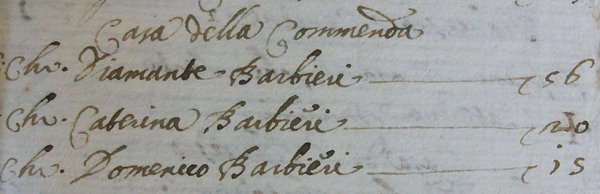 Casa della Commenda
Chr. Diamante Barbieri 56
Chr. Caterina Barbieri 20
Chr. Domenico Barbieri 15